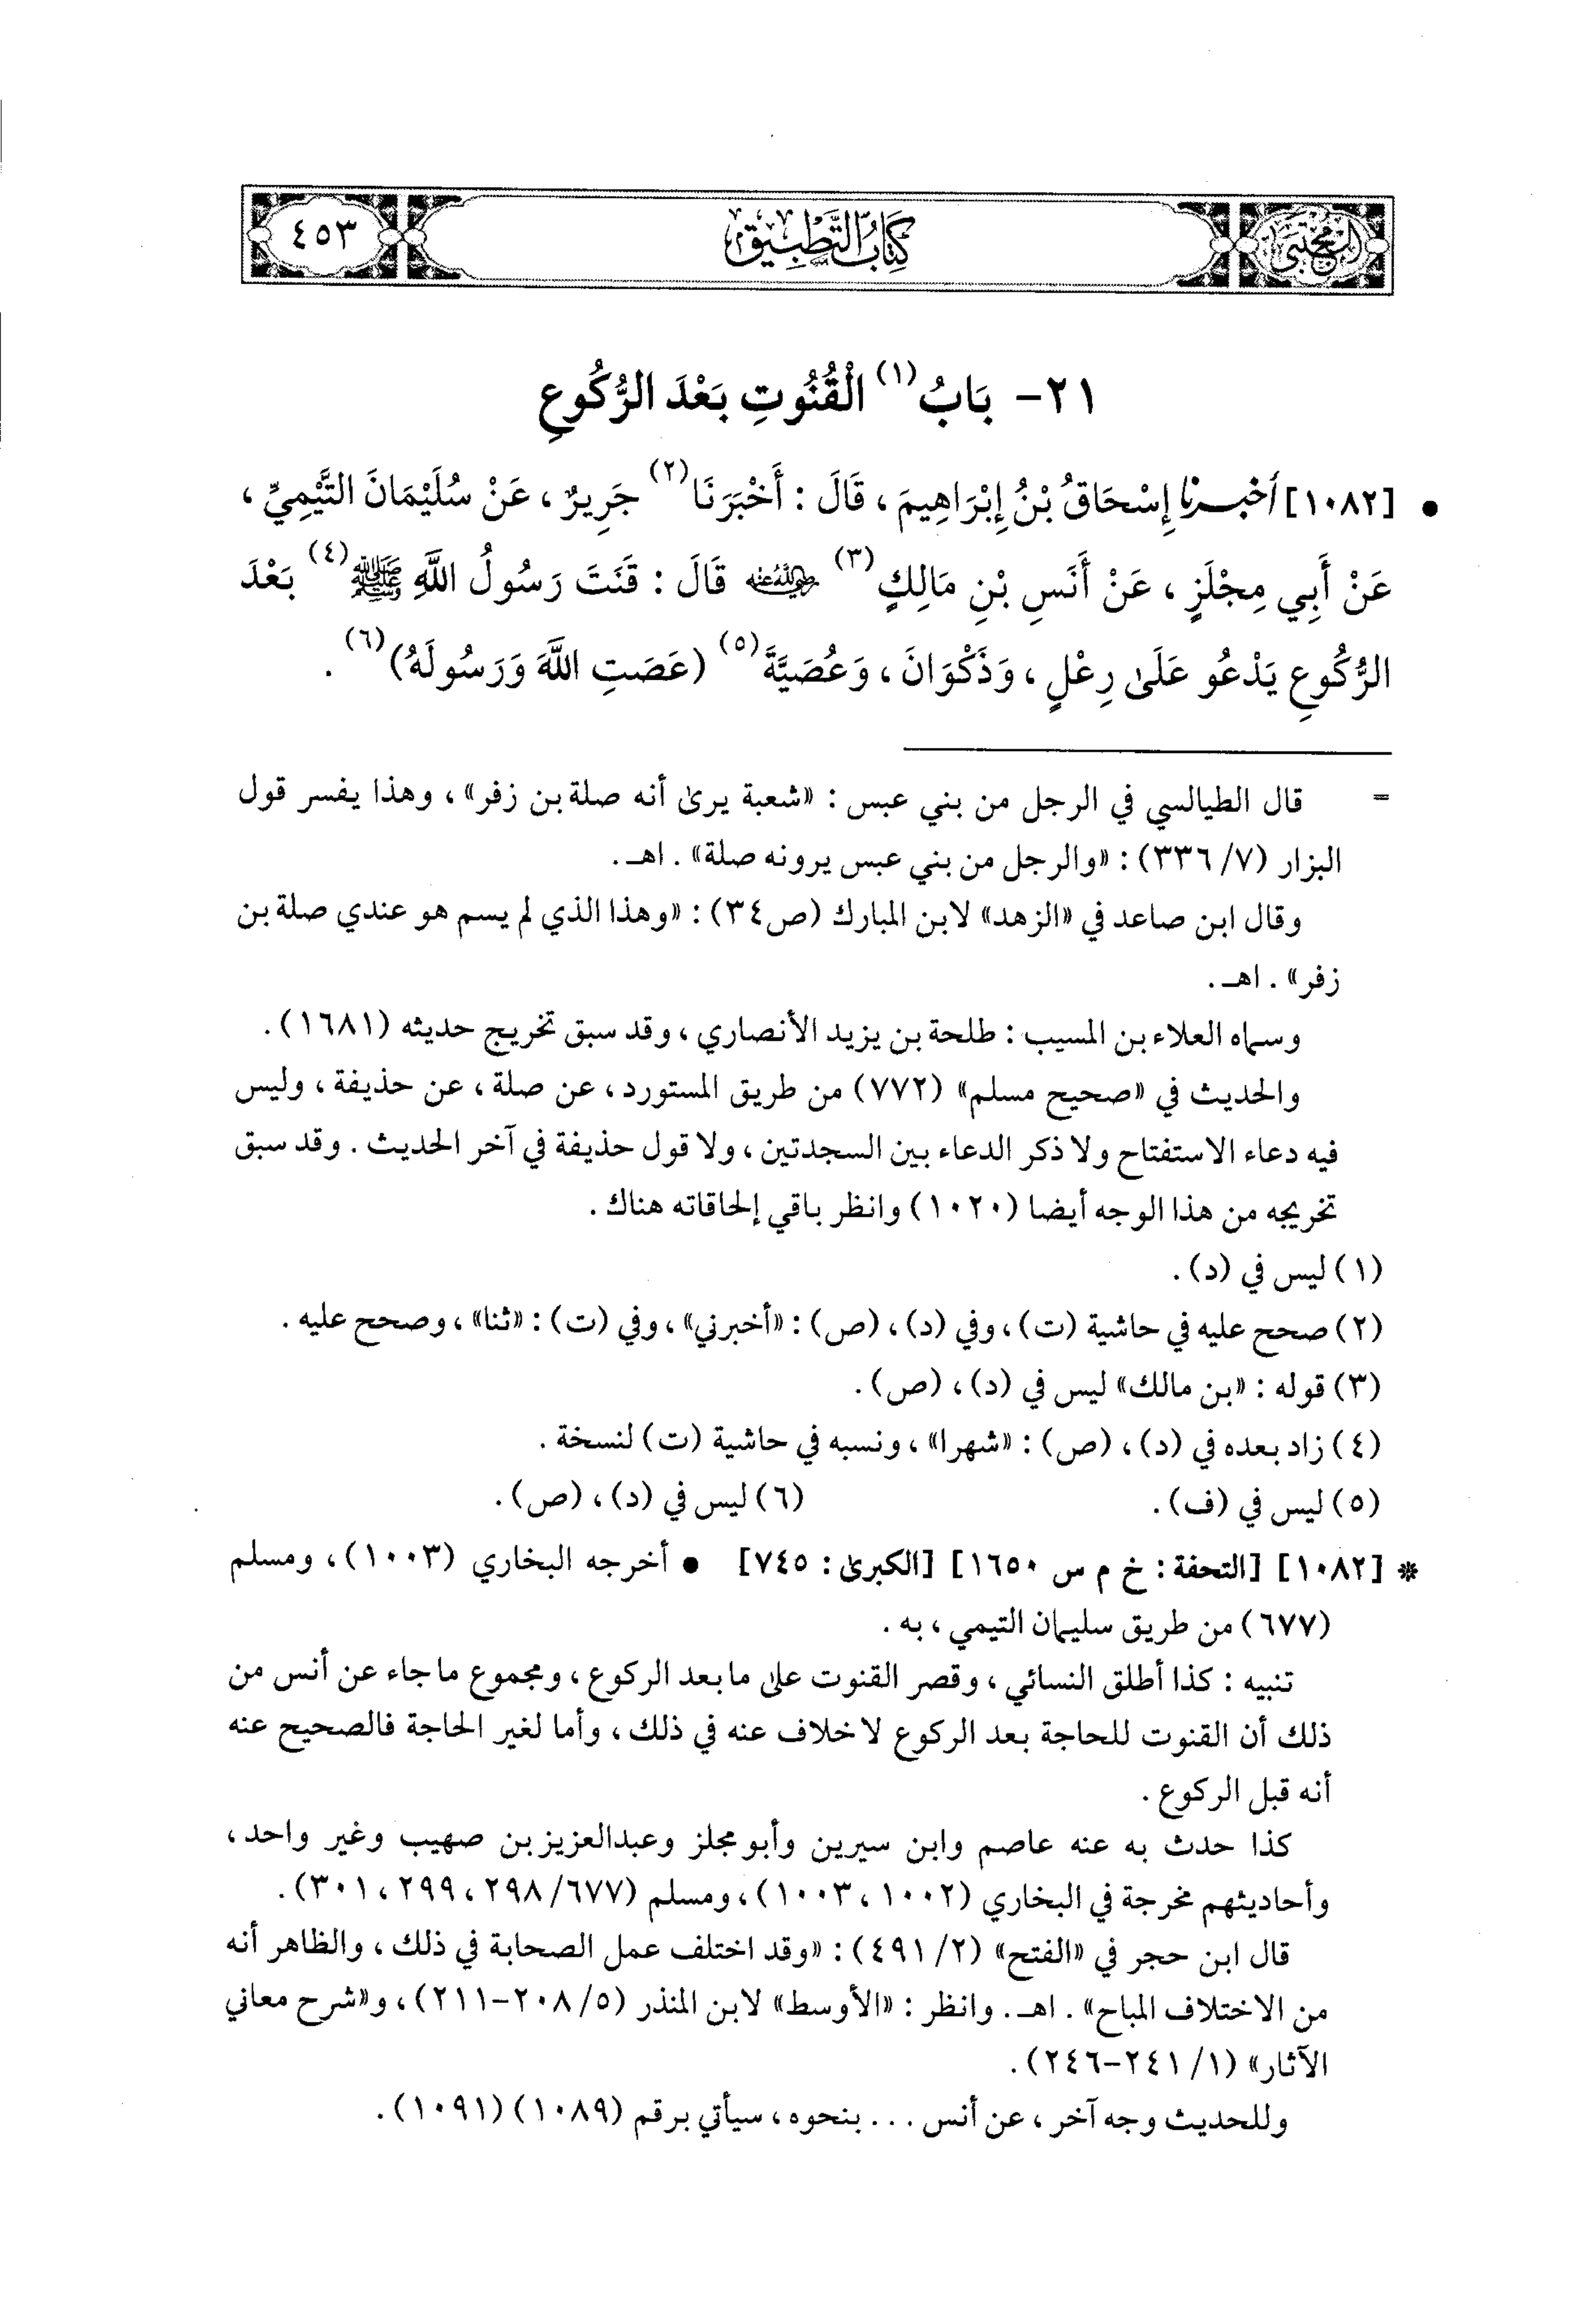 المجتبى
كتاب التطبيق
٤٥٣
٢١- بَابُ(١) الْقُنُوتِ بَعْدَ الرُّكُوعِ
• [١٠٨٢] أخبرنا إِسْحَاقُ بْنُ إِبْرَاهِيمَ، قَالَ: أَخْبَرَنَا(٢) جَرِيرٌ، عَنْ سُلَيْمَانَ التَّيْمِيِّ،
عَنْ أَبِي مِجْلَزٍ، عَنْ أَنَسِ بْنِ مَالِكٍ(٣) رضي الله عنه قَالَ: قَنَتَ رَسُولُ اللَّهِ ﷺ(٤) بَعْدَ
الرُّكُوعِ يَدْعُو عَلَىٰ رِعْلٍ، وَذَكْوَانَ، وَعُصَيَّةَ(٥) (عَصَتِ اللَّهَ وَرَسُولَهُ)(٦).
= قال الطيالسي في الرجل من بني عبس: «شعبة يرىٰ أنه صلة بن زفر»، وهذا يفسر قول
البزار (٧/ ٣٣٦): «والرجل من بني عبس يرونه صلة». اهـ.
وقال ابن صاعد في «الزهد» لابن المبارك (ص٣٤): «وهذا الذي لم يسم هو عندي صلة بن
زفر». اهـ.
وسماه العلاء بن المسيب: طلحة بن يزيد الأنصاري، وقد سبق تخريج حديثه (١٦٨١).
والحديث في «صحيح مسلم» (٧٧٢) من طريق المستورد، عن صلة، عن حذيفة، وليس
فيه دعاء الاستفتاح ولا ذكر الدعاء بين السجدتين، ولا قول حذيفة في آخر الحديث. وقد سبق
تخريجه من هذا الوجه أيضا (١٠٢٠) وانظر باقي إلحاقاته هناك.
(١) ليس في (د).
(٢) صحح عليه في حاشية (ت)، وفي (د)، (ص): «أخبرني»، وفي (ت): «ثنا»، وصحح عليه.
(٣) قوله: «بن مالك» ليس في (د)، (ص).
(٤) زاد بعده في (د)، (ص): «شهرا»، ونسبه في حاشية (ت) لنسخة.
(٥) ليس في (ف). (٦) ليس في (د)، (ص).
* [١٠٨٢] [التحفة: خ م س ١٦٥٠] [الكبرىٰ: ٧٤٥] • أخرجه البخاري (١٠٠٣)، ومسلم
(٦٧٧) من طريق سليمان التيمي، به.
تنبيه: كذا أطلق النسائي، وقصر القنوت علىٰ ما بعد الركوع، ومجموع ما جاء عن أنس من
ذلك أن القنوت للحاجة بعد الركوع لا خلاف عنه في ذلك، وأما لغير الحاجة فالصحيح عنه
أنه قبل الركوع.
كذا حدث به عنه عاصم وابن سيرين وأبو مجلز وعبدالعزيز بن صهيب وغير واحد،
وأحاديثهم مخرجة في البخاري (١٠٠٢، ١٠٠٣)، ومسلم (٦٧٧/ ٢٩٨، ٢٩٩، ٣٠١).
قال ابن حجر في «الفتح» (٢/ ٤٩١): «وقد اختلف عمل الصحابة في ذلك، والظاهر أنه
من الاختلاف المباح». اهـ. وانظر: «الأوسط» لابن المنذر (٥/ ٢٠٨-٢١١)، و«شرح معاني
الآثار» (١/ ٢٤١-٢٤٦).
وللحديث وجه آخر، عن أنس... بنحوه، سيأتي برقم (١٠٨٩) (١٠٩١).